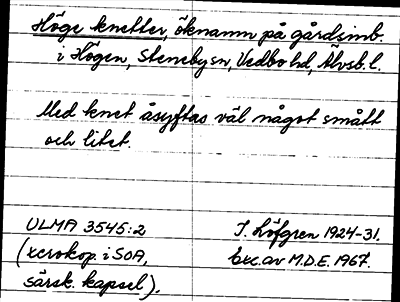 Höge knetter, öknamn på gårdsinb.
i Högen, Stenebysn, Vedbo hd, Älvsb. l.
Med knet åsyftas väl något smått
och litet.
ULMA 3545:2
(xerokop. i SOA,
särsk. kapsel).
J. Löfgren 1924-31.
Exc. av M.D.E. 1967.